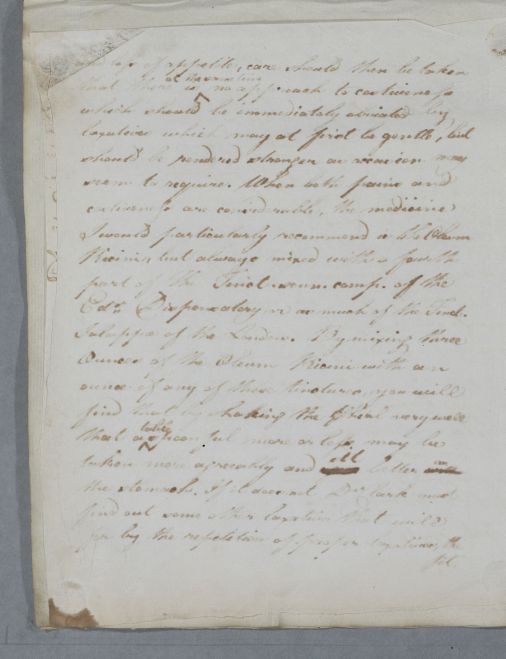 of appetite, care should then be taken
that there is no approach to costiveness
which should be immediately obviated by
laxatives which may at first be gentle, but
should be rendered stronger as occasion may
seem to require. When both pains and
costiveness are considerable, the medicine
I would particularly recommend is the Oleum
Ricini, but always mixed with a fourth
part of the Tinct. comp. of the
Edr. Dispensatory or as much of the Tinct.
Jalappæ of the London. By mixing three
Ounces of the Oleum Ricini with an
ounce of any of those tinctures, you will
find that by shaking the Phial very well
that a table spoonful more or less may be
taken more agreeably and sit better on
the stomach. If it does not Dr. Clark must
find out some other laxative that will
for by the repetition of proper laxatives, the